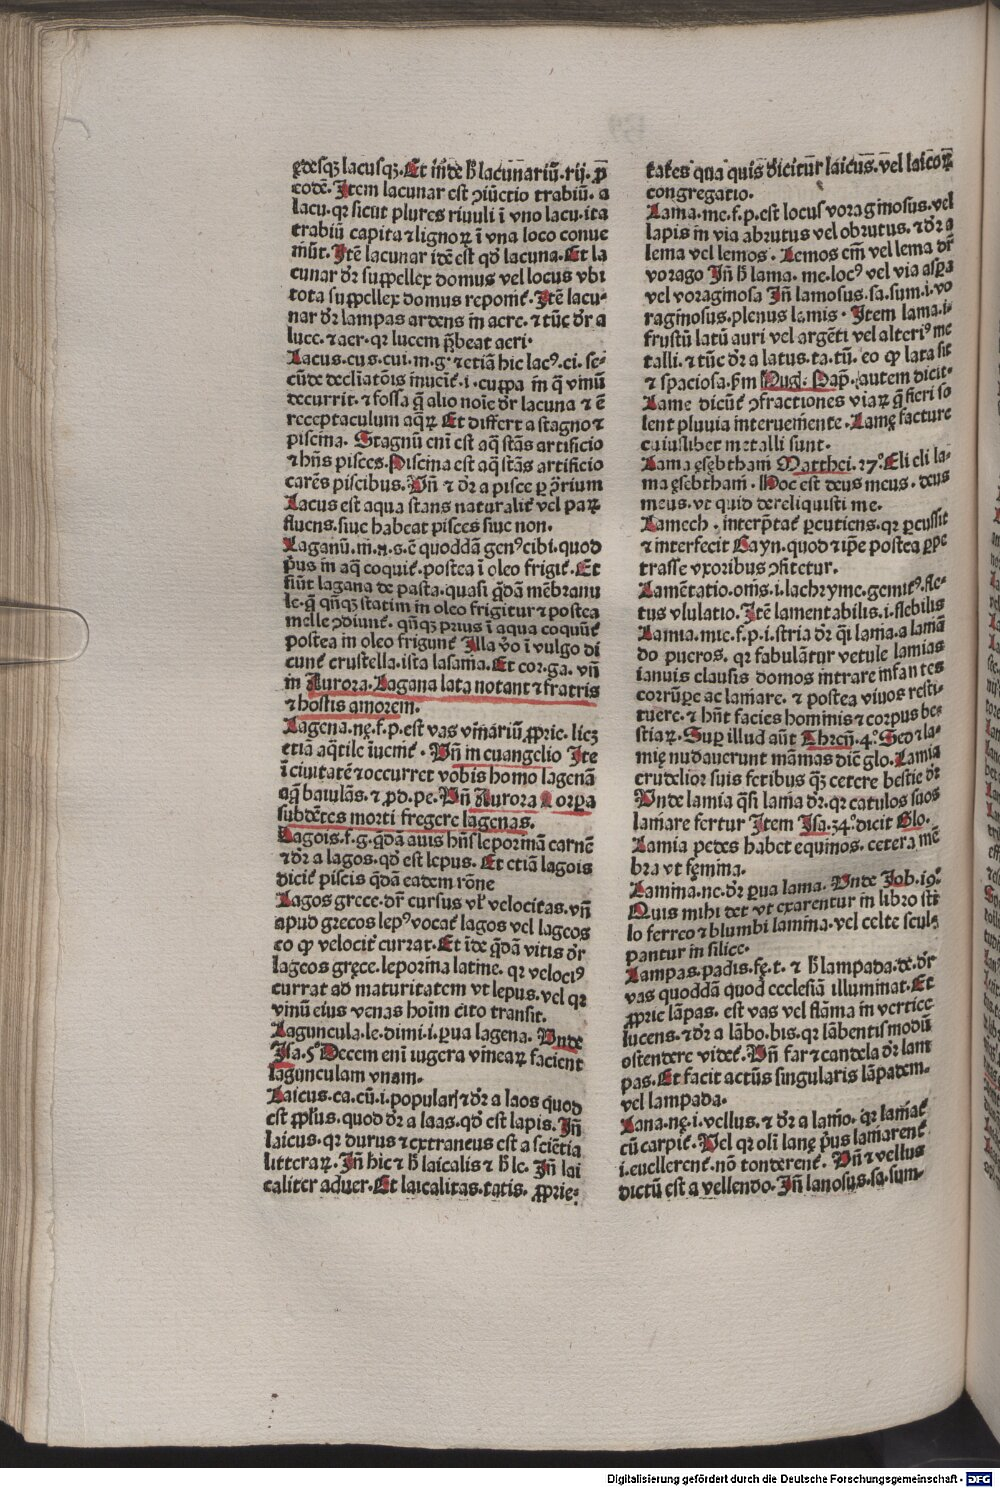 ędesqꝫ lacusqꝫ. Et in̄de h̄ lacunariū. rij. ꝓ
eodē. Item lacunar est ꝯiūctio trabiū. a
lacu. qꝛ sicut plures riuuli ī vno lacu. ita
trabiū capita ⁊ lignoꝝ ī vna loco conue
niūt. Itē lacunar idē est qđ lacuna. Et la
cunar dr̄ suppellex domus vel locus vbi
tota suppellex domus reponit̄. Itē lacu-
nar dr̄ lampas ardens in aere. ⁊ tūc dr̄ a
luce. ⁊ aer. qꝛ lucem p̄beat aeri.
Lacus. cus. cui. m. g. ⁊ etiā hic lacꝰ. ci. se-
cūde decliatōis inueit̄. i. cuppa in q̄ vinū
decurrit. ⁊ fossa q̄ alio noīe dr̄ lacuna ⁊ ē
receptaculum aqꝝ Et differt a stagno ⁊
piscina. Stagnū eni est aq̄ stās artificio
⁊ hn̄s pisces. Piscina est aq̄ stās artificio
carēs piscibus. Vn̄ ⁊ dr̄ a pisce ꝑ ꝯ̄rium
Lacus est aqua stans naturalit̄ vel paꝝ
fluens. siue habeat pisces siue non.
Laganū. ni. n. s. ē quoddā genꝰ cibi. quod
p̄us in aq̄ coquit̄. postea ī oleo frigit̄. Et
fiūt lagana de pasta. quasi q̄dā mēbranu
le. q̄ qn̄qꝫ statim in oleo frigitur ⁊ postea
melle ꝯdiunt̄. qn̄qꝫ prius ī aqua coquūt̄
postea in oleo frigunt̄ Illa v̄o ī vulgo di
cunt̄ crustella. ista lasania. Et cor. ga. vn̄
in Aurora. Lagana lata notant ⁊ fratris
⁊ hostis amorem.
Lagena. nę. f. p. est vas vinariū ꝓprie. licꝫ
etiā aq̄tile īueniat̄. Vn̄ in euangelio Ite
ī ciuitatē ⁊ occurret vobis homo lagenā
aq̄ baiulās. ⁊ ꝓd. pe. Vn̄ Aurora Corpa
subdētes morti fregere lagenas.
Lagois. f. g. q̄dā auis hn̄s leporinā carnē
⁊ dr̄ a lagos. qđ est lepus. Et etiā lagois
dicit̄ piscis q̄dā eadem rōne
Lagos grece. dr̄ cursus vl̄ velocitas. vn̄
apud grecos lepꝰ vocat̄ lagos vel lageos
eo qꝙ velocit̄ currat. Et īde q̄dā vitis dr̄
lageos gręce. leporina latine. qꝛ velociꝰ
currat ad maturitatem vt lepus. vel qꝛ
vinū eius venas hoīm cito transit.
Laguncula. le. dimi. i. ꝑua lagena. Vnde
Isa. 5º Decem eni iugera vineaꝝ facient
lagunculam vnam.
Laicus. ca. cū. i. popularis ⁊ dr̄ a laos quod
est ꝓpl̄us. quod dr̄ a laas. qđ est lapis. Iñ
laicus. qꝛ durus ⁊ extraneus est a sciētia
litteraꝝ. Iñ hic ⁊ h̄ laicalis ⁊ h̄ le. Iñ lai
caliter aduer. Et laicalitas. tatis. ꝓprie.
tates qua quis dicitur laicus. vel laicoꝝ
congregatio.
Lama. me. f. p. est locus voraginosus. vel
lapis in via abrutus vel obrutus. ⁊ dr̄ a
lema vel lemos. Lemos eni vel lema dr̄
vorago Iñ h̄ lama. me. locꝰ vel via aspa
vel voraginosa Iñ lamosus. sa. sum. i. vo
raginosus. plenus lamis. Item lama. i.
frustū latū auri vel argēti vel alteriꝰ me
talli. ⁊ tūc dr̄ a latus. ta. tū. eo qꝙ lata sit
⁊ spaciosa. ẜm Hug. Pap̄. autem dicit.
Lame dicūt̄ ꝯfractiones viaꝝ q̄ fieri so
lent pluuia interueniente. Lamę facture
cuiuslibet metalli sunt.
Lama ęsębthani Matthei. 27º Eli eli la-
ma ęsebthani. Hoc est deus meus. deus
meus. vt quid dereliquisti me.
Lamech. interp̄tat̄ ꝑcutiens. qꝛ ꝑcussit
⁊ interfecit Cayn. quod ⁊ ip̄e postea ꝑpe
trasse vxoribus ꝯfitetur.
Lamētatio. onis. i. lachryme. gemitꝰ. fle-
tus vlulatio. Itē lamentabilus. i. flebilus
Lamia. mie. f. p. i. stria dr̄ q̄i lania. a lania
do pueros. qꝛ fabulātur vetule lamias
ianuis clausis domos intrare infantes
corrūpere ac laniare. ⁊ postea viuos resti-
tuere. ⁊ hn̄t facies hominis ⁊ corpus be-
stiaꝝ. Suꝑ illud aūt Thren̄. 4º. Sed ⁊ la-
mię nudauerunt māmas dic̄ glo. Lamia
crudelior suis fetibus q̄ꝫ cetere bestie dr̄
Vnde lamia q̄si lania dr̄. qꝛ catulos suos
laniare fertur Item Isa. 34º. dicit Glo.
Lamia pedes habet equinos. cetera mē
bra vt fęmina.
Lamina. ne. dr̄ ꝑua lama. Vnde Job. 19º.
Quis mihi det vt exarentur in libro sti
lo ferreo ⁊ blumbi lamina. vel celte scul-
pantur in silice.
Lampas. padis. fę. t. ⁊ h̄ lampada. de. dr̄
vas quoddā quod ecclesiā illuminat. Et
ꝓprie lāpas. est vas vel flāma in vertice
lucens. ⁊ dr̄ a lābo. bis. qꝛ lābentis modū
ostendere videt̄. Vn̄ far ⁊ candela dr̄ lam
pas. Et facit actūs singularis lāpadem.
vel lampada.
Lana. nę. i. vellus. ⁊ dr̄ a lanio. qꝛ laniat̄
cū carpit̄. Vel qꝛ oli lanę p̄us laniarent̄
i. euellerent̄. nō tonderent̄. Vn̄ ⁊ vellus
dictū est a vellendo. Iñ lanosus. sa. sum.
Digitalisierung gefördert durch die Deutsche Forschungsgemeinschaft - DFG